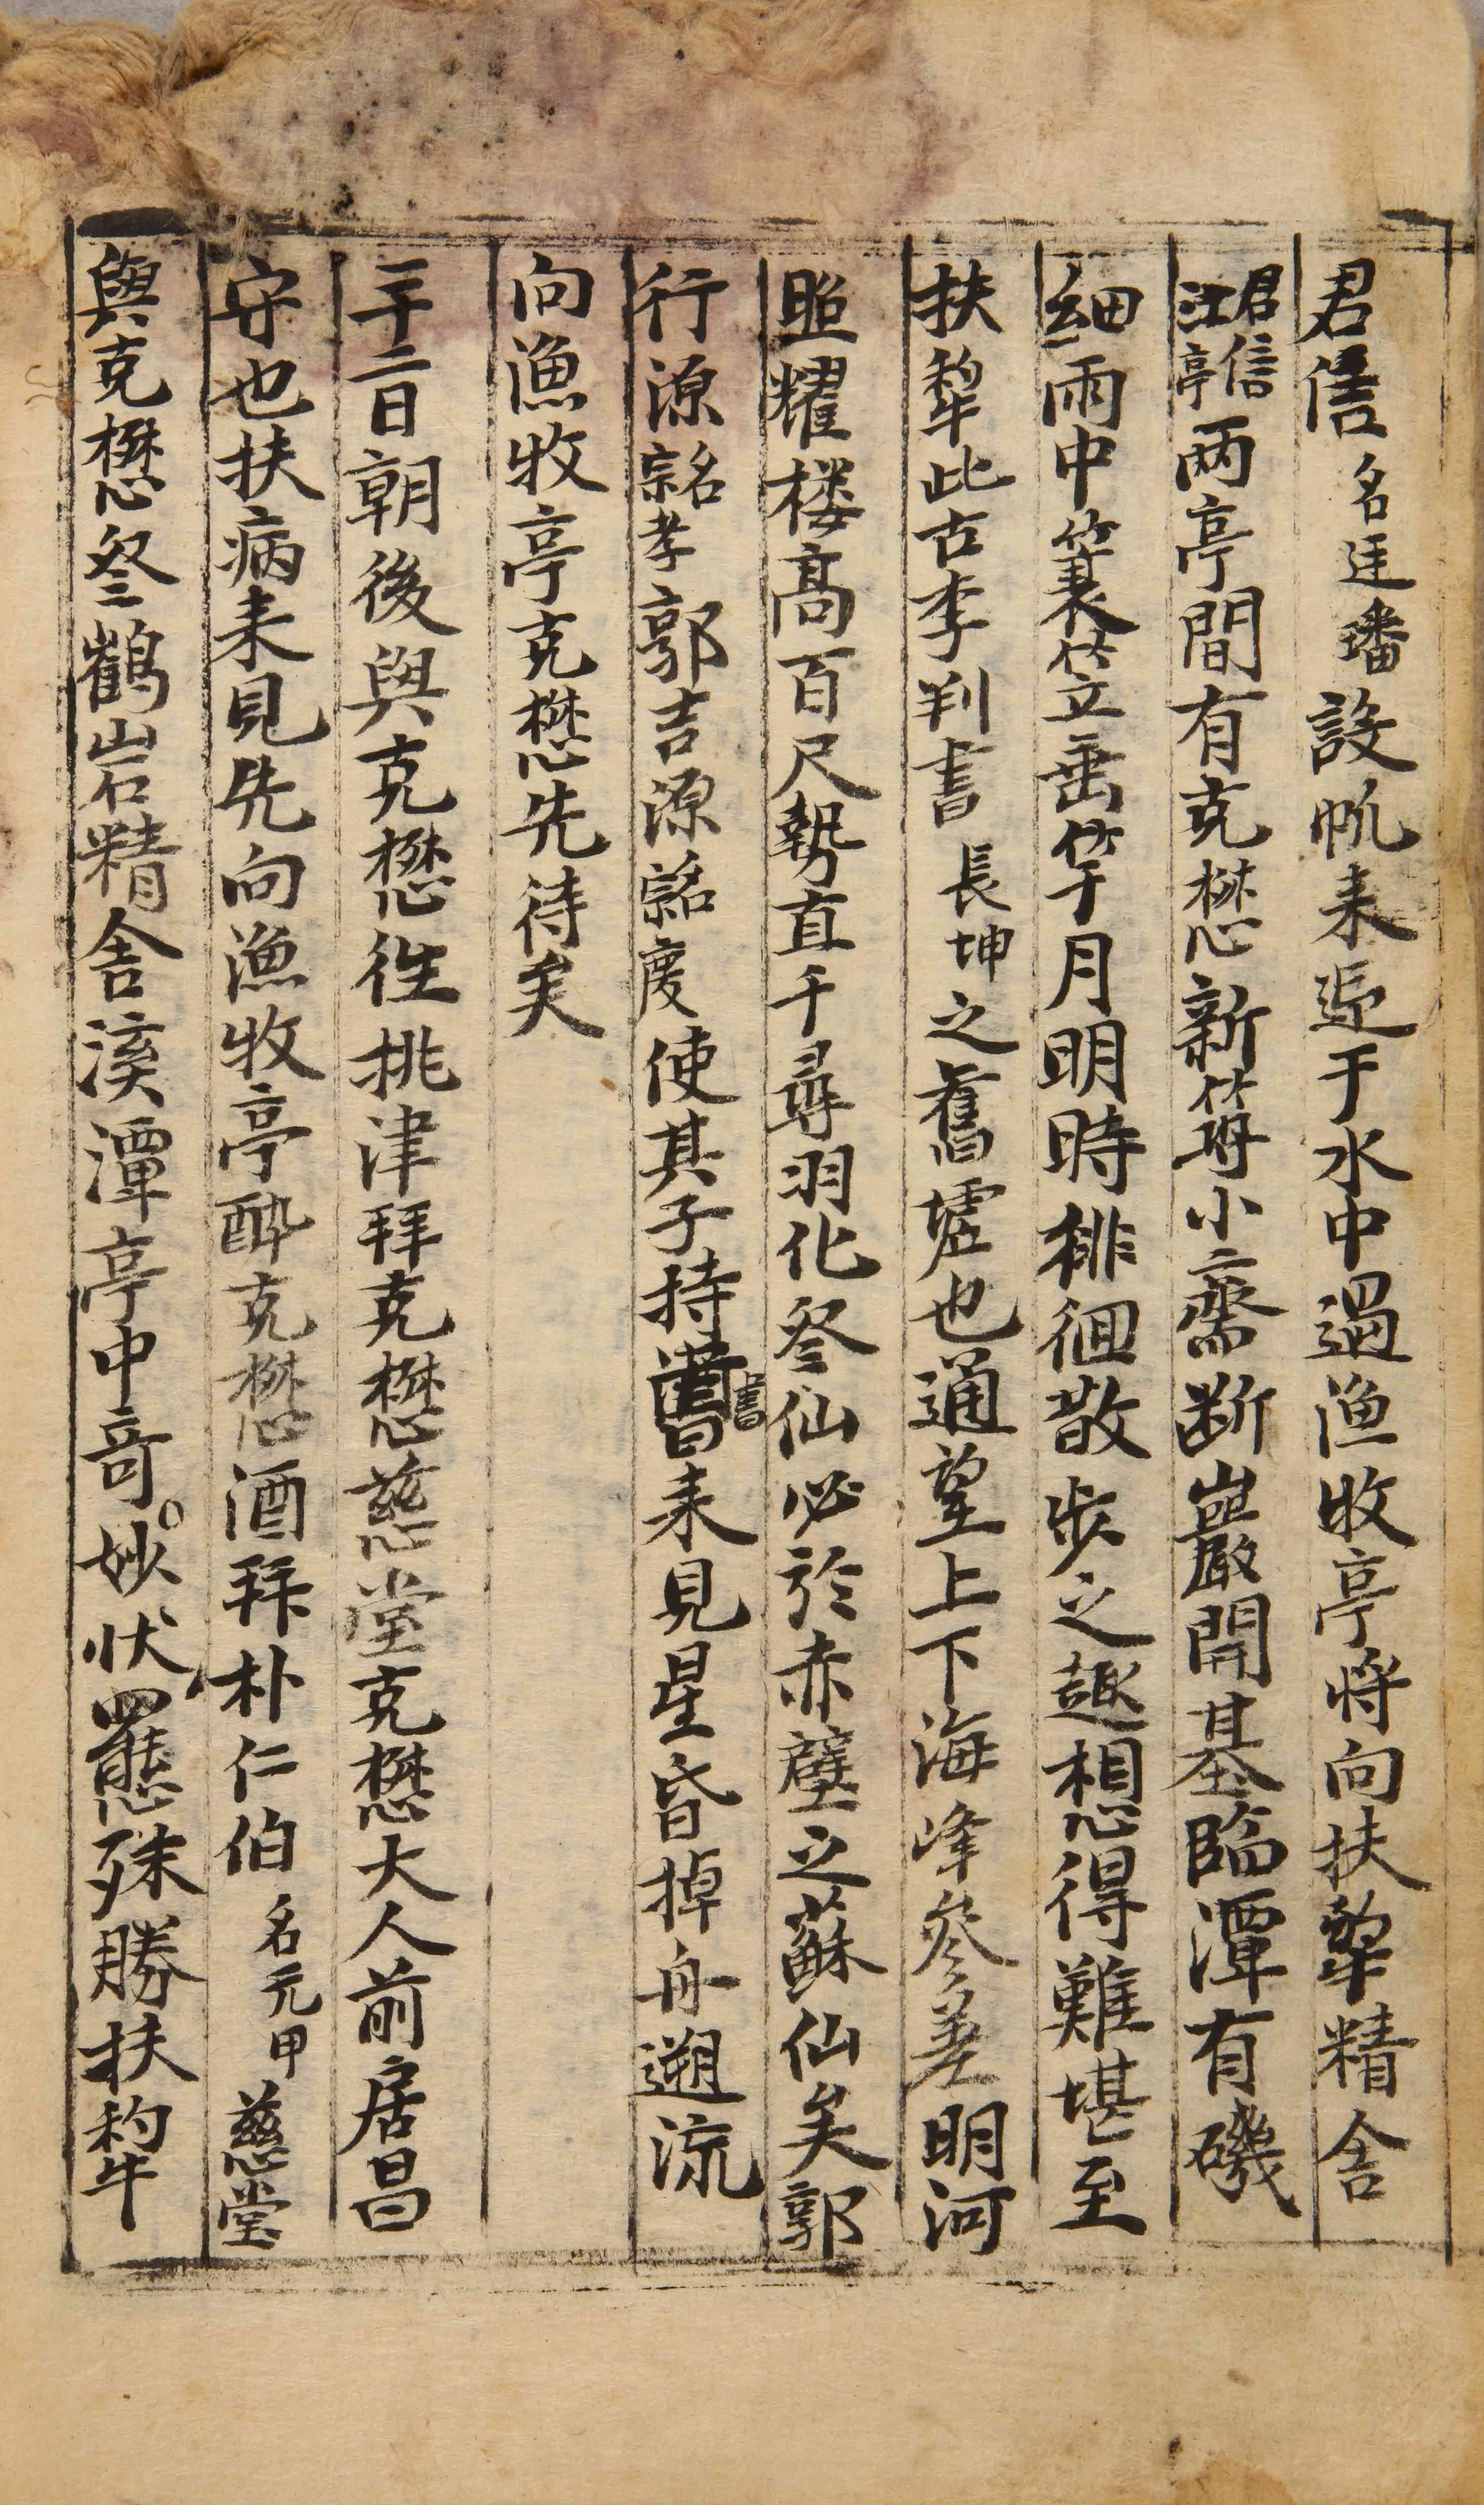 君信名廷璠設帆来迎于水中過漁牧亭将向扶犂精舎
君信江亭两亭間有克懋新築小齋断巖開基臨潭有磯
細雨中簑笠垂竿月明時徘徊散步之趣想得難堪至
扶犂此古李判書長坤之舊墟也通望上下海峰參差明河
照耀楼高百尺勢直千尋羽化登仙必於赤壁之蘇仙矣郭
行源名宗孝郭吉源名宗慶使其子持書来見星昏掉舟遡流
向漁牧亭克懋先待矣
二十二日朝後與克懋徃挑津拜克懋慈堂克懋大人前居昌
守也扶病来見先向漁牧亭酔克懋酒拜朴仁伯名元甲慈堂
與克懋登鶴岩精舎溪潭亭中竒妙状羆殊勝扶犂